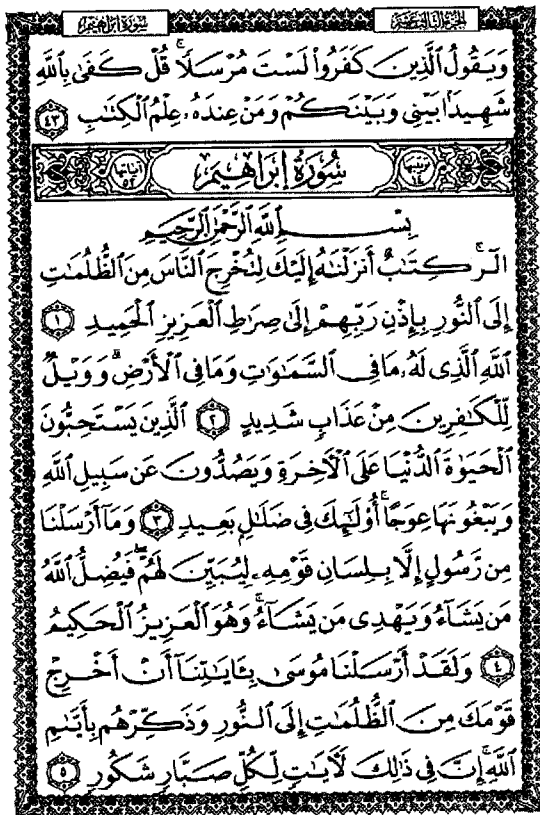 سورة إبراهيم
الجزء الثالث عشر
وَيَقُولُ ٱلَّذِينَ كَفَرُوا۟ لَسْتَ مُرْسَلًا ۚ قُلْ كَفَىٰ بِٱللَّهِ
شَهِيدًۢا بَيْنِى وَبَيْنَكُمْ وَمَنْ عِندَهُۥ عِلْمُ ٱلْكِتَٰبِ ٤٣
ترتيبها ١٤ سُورَةُ إِبْرَاهِيمَ آياتها ٥٢
بِسْمِ ٱللَّهِ ٱلرَّحْمَٰنِ ٱلرَّحِيمِ
الٓر ۚ كِتَٰبٌ أَنزَلْنَٰهُ إِلَيْكَ لِتُخْرِجَ ٱلنَّاسَ مِنَ ٱلظُّلُمَٰتِ
إِلَى ٱلنُّورِ بِإِذْنِ رَبِّهِمْ إِلَىٰ صِرَٰطِ ٱلْعَزِيزِ ٱلْحَمِيدِ ١
ٱللَّهِ ٱلَّذِى لَهُۥ مَا فِى ٱلسَّمَٰوَٰتِ وَمَا فِى ٱلْأَرْضِ ۗ وَوَيْلٌ
لِّلْكَٰفِرِينَ مِنْ عَذَابٍ شَدِيدٍ ٢ ٱلَّذِينَ يَسْتَحِبُّونَ
ٱلْحَيَوٰةَ ٱلدُّنْيَا عَلَى ٱلْءَاخِرَةِ وَيَصُدُّونَ عَن سَبِيلِ ٱللَّهِ
وَيَبْغُونَهَا عِوَجًا ۚ أُو۟لَٰٓئِكَ فِى ضَلَٰلٍۭ بَعِيدٍ ٣ وَمَآ أَرْسَلْنَا
مِن رَّسُولٍ إِلَّا بِلِسَانِ قَوْمِهِۦ لِيُبَيِّنَ لَهُمْ ۖ فَيُضِلُّ ٱللَّهُ
مَن يَشَآءُ وَيَهْدِى مَن يَشَآءُ ۚ وَهُوَ ٱلْعَزِيزُ ٱلْحَكِيمُ
٤ وَلَقَدْ أَرْسَلْنَا مُوسَىٰ بِـَٔايَٰتِنَآ أَنْ أَخْرِجْ
قَوْمَكَ مِنَ ٱلظُّلُمَٰتِ إِلَى ٱلنُّورِ وَذَكِّرْهُم بِأَيَّىٰمِ
ٱللَّهِ ۚ إِنَّ فِى ذَٰلِكَ لَءَايَٰتٍ لِّكُلِّ صَبَّارٍ شَكُورٍ ٥